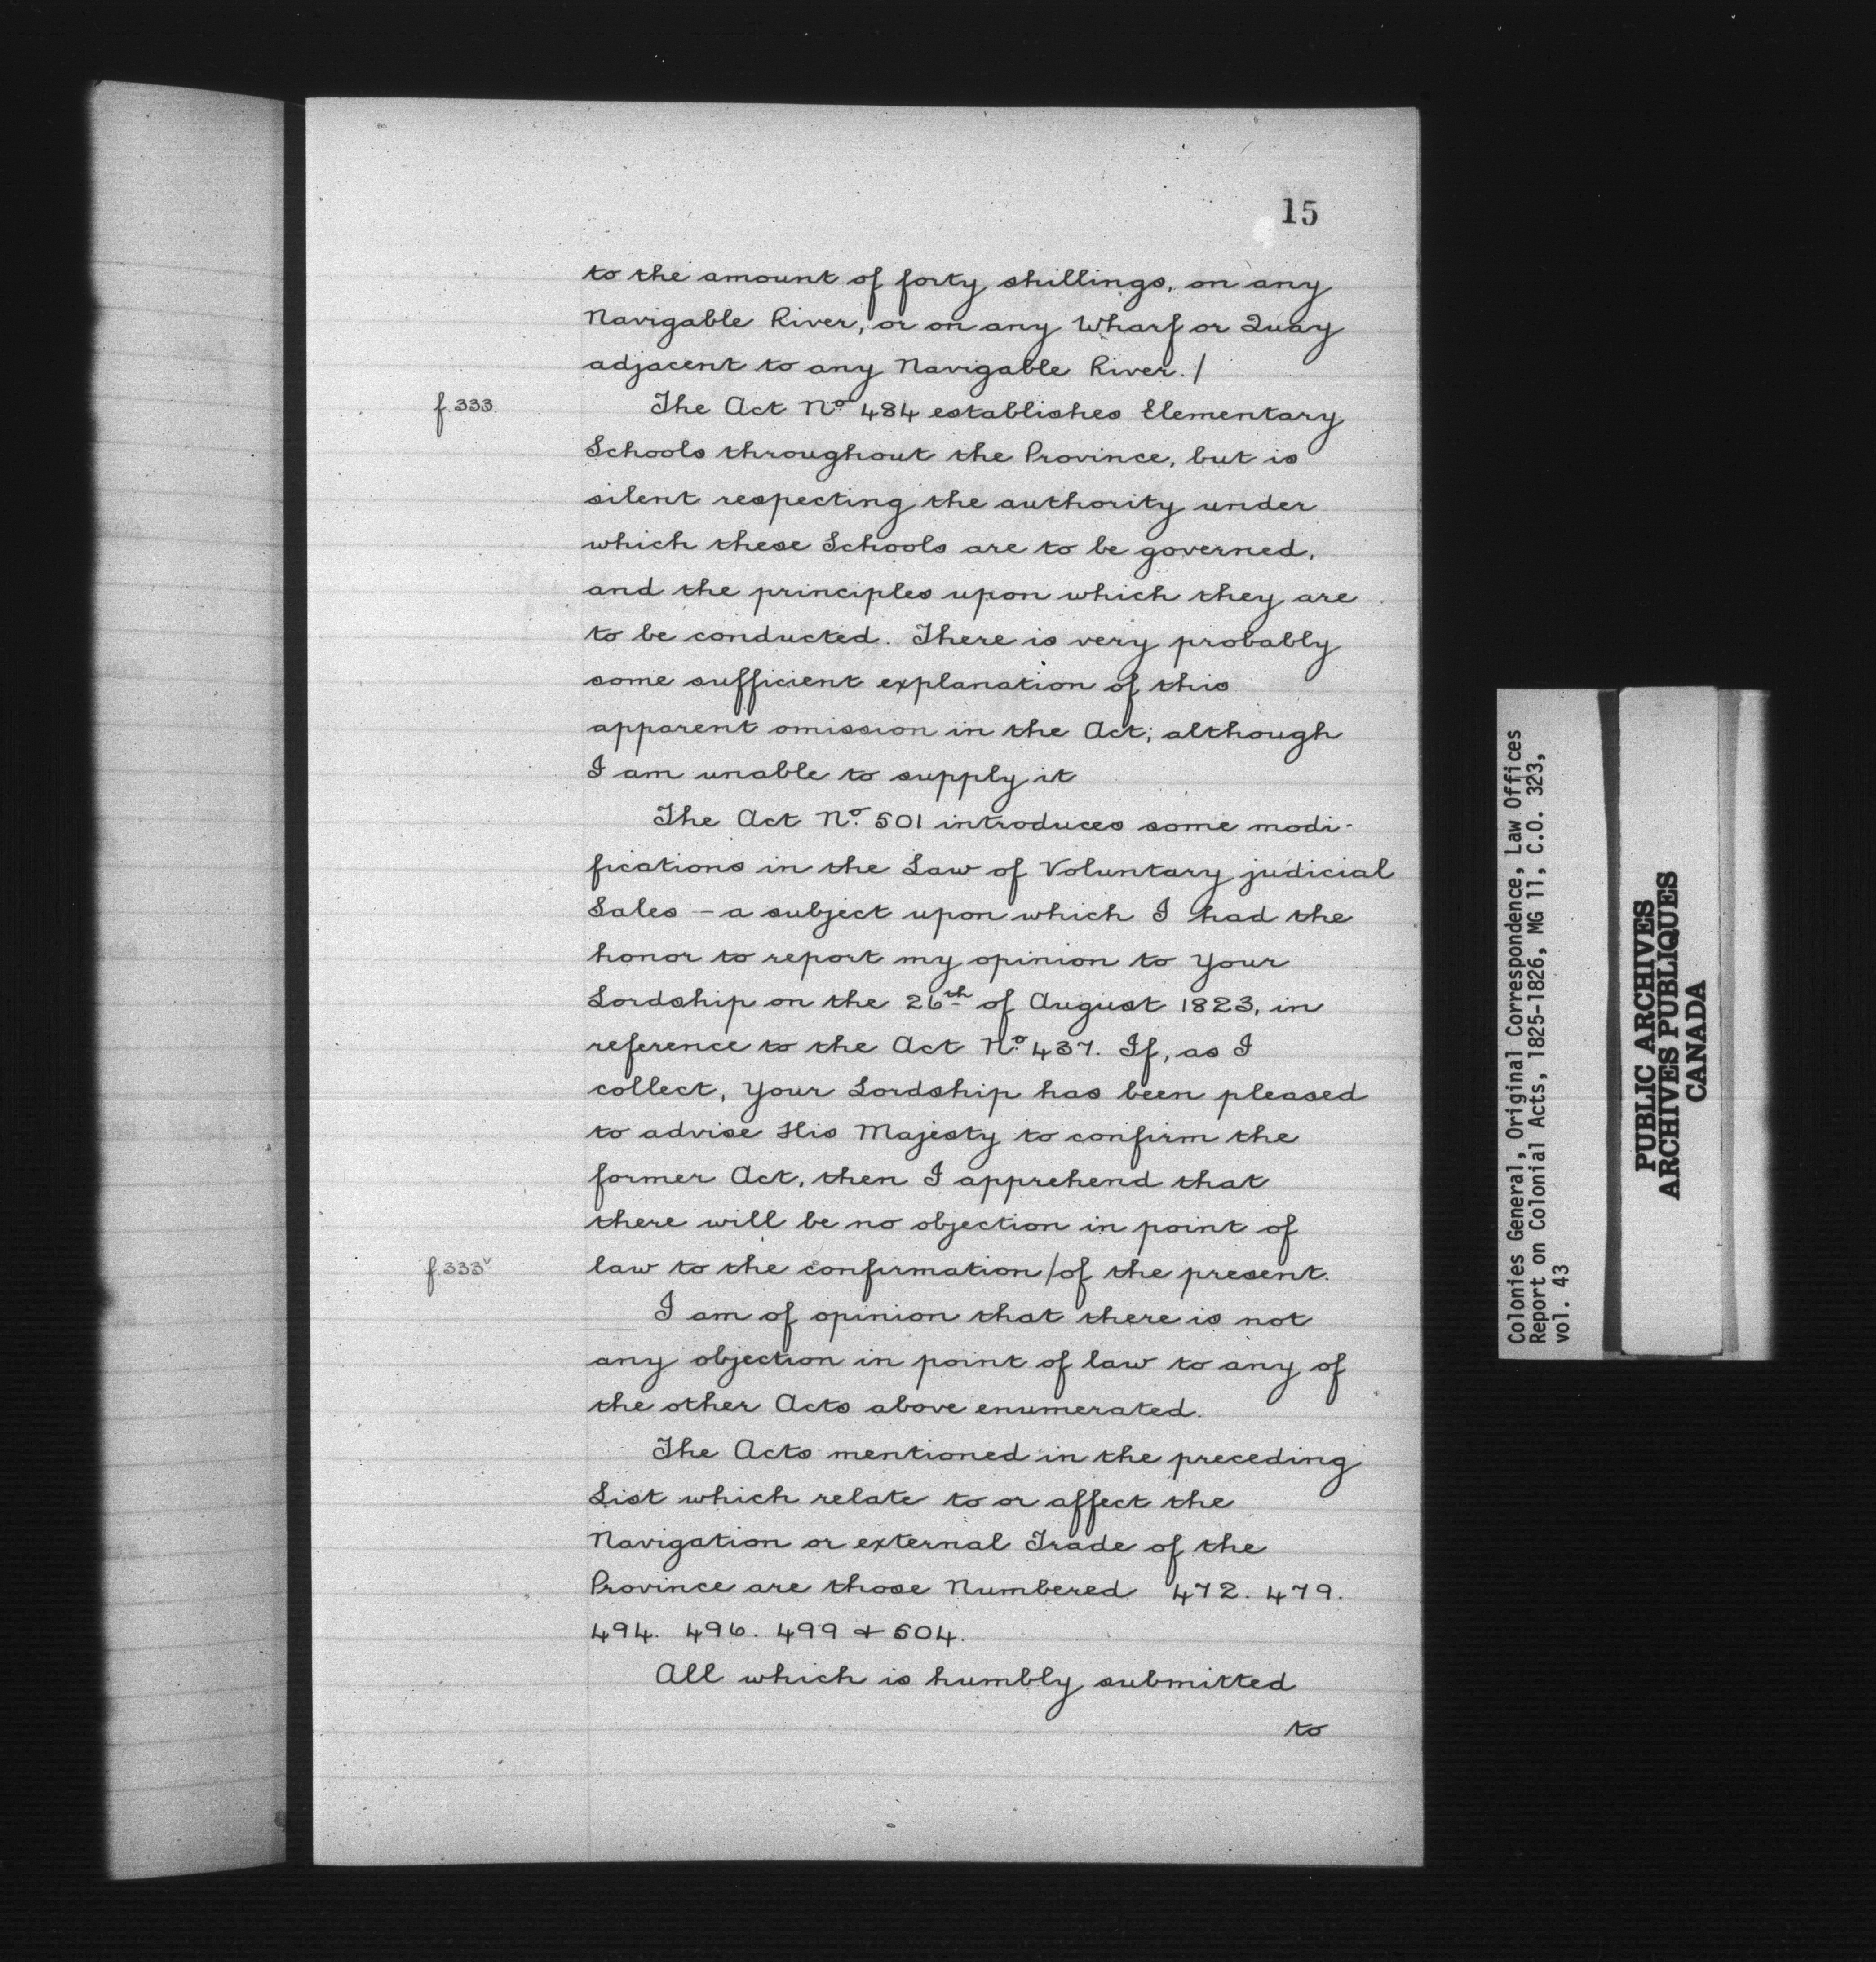 15
to the amount of forty shillings, on any
Navigable River, or on any Wharf or Quay
adjacent to any Navigable River. /
f.333.
The Act Nº 484 establishes Elementary
Schools throughout the Province, but is
silent respecting the authority under
which these Schools are to be governed,
and the principles upon which they are
to be conducted. There is very probably
some sufficient explanation of this
apparent omission in the Act; although
I am unable to supply it
The Act Nº 501 introduces some modi-
fications in the Law of Voluntary judicial
Sales – a subject upon which I had the
honor to report my opinion to Your
Lordship on the 26th of August 1823, in
reference to the Act Nº 437. If, as I
collect, Your Lordship has been pleased
to advise His Majesty to confirm the
former Act, then I apprehend that
there will be no objection in point of
f.333v
law to the confirmation / of the present.
I am of opinion that there is not
any objection in point of law to any of
the other Acts above enumerated.
The Acts mentioned in the preceding
List which relate to or affect the
Navigation or external Trade of the
Province are those Numbered 472. 479.
494. 496. 499 & 504.
All which is humbly submitted
to
Colonies General, Original Correspondence, Law Offices
Report on Colonial Acts, 1825-1826, MG 11, C.O. 323,
vol. 43
PUBLIC ARCHIVES
ARCHIVES PUBLIQUES
CANADA